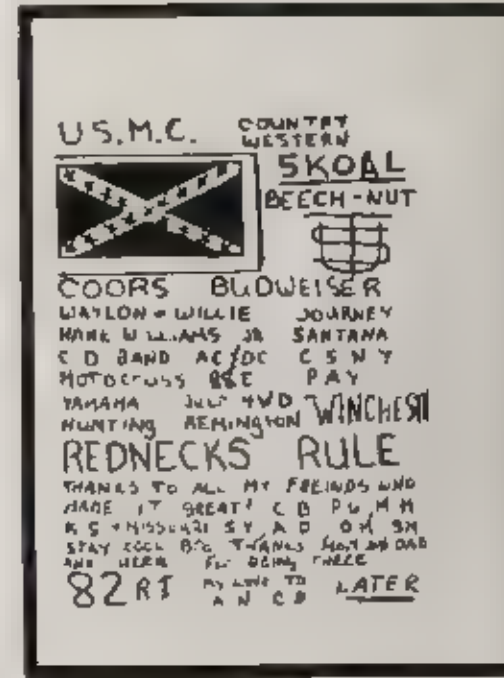 U.S.M.C. COUNTRY
WESTERN
SKOAL
BEECH-NUT
$
COORS BUDWEISER
WAYLON + WILLIE JOURNEY
HANK WILLIAMS JR SANTANA
C D BAND AC/DC C S N Y
MOTOCROSS PAY
YAMAHA 4WD WINCHEST
HUNTING REMINGTON
REDNECKS RULE
THANKS TO ALL MY FREINDS WHO
MADE IT GREAT! C B P W M M
K S + MISSOURI S Y A D
STAY COOL THANKS MOM DAD
AND BEING THERE
82 RT MY LOVE TO LATER
A N C B